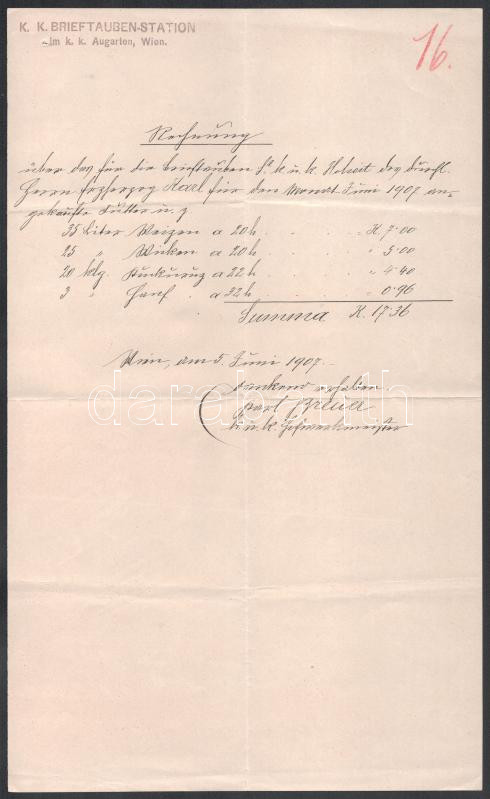 K. K. BRIEFTAUBEN-STATION
im k. k. Augarten, Wien.
16.
Rechnung
über das für die Brieftauben Sr. k. u. k. Hoheit des durchl.
Herrn Erzherzog Karl für den Monat Juni 1907 an-
gekaufte Futter u. z
35 Liter Weizen a 20 h. . . . . „ K. 7·00
25 „ Wicken a 20 h. . . . . „ 5·00
20 Klg. Kukuruz a 22 h . . . . „ 4·40
3 „ Hanf . a 32 h „ 0·96
Summa K. 17·36
Wien, am 5. Juni 1907.
dankend erhalten.
Karl
k. u. k. Hofwerkmeister
darabanth